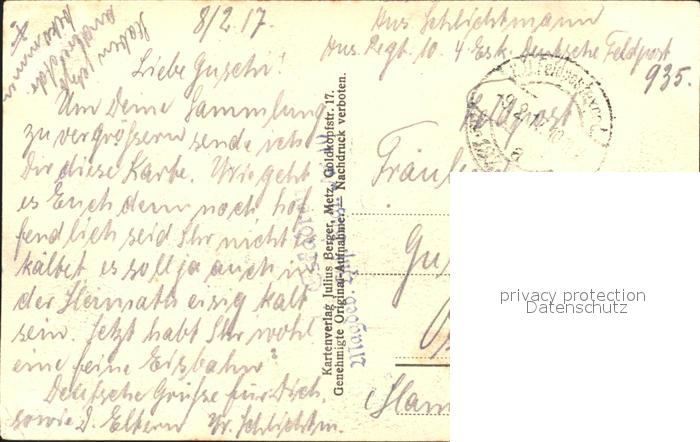 8/2.17.
Hus Schlichtmann
Hus. Regt. 10. 4 Esk. Deutsche Feldpost
935.
Haben jetzt
Liebe Guschi!
Um Deine Sammlung
zu vergrößern sende ich
Dir diese Karte. Wie geht
es Euch denn noch hof
fendlich seid Ihr nicht
kältet es soll ja auch in
der Heimath eisig kalt
sein. Jetzt habt Ihr wohl
eine feine Eisbahn?
Deutsche Grüße für Dich
sowie D. Eltern Hr. Schlichtm.
Kartenverlag Julius Berger, Metz, Goldkopfstr. 17.
Genehmigte Original-Aufnahme. — Nachdruck verboten.
Magdeb.
Feldpost
Fräulein
Gu
Ham
privacy protection
Datenschutz